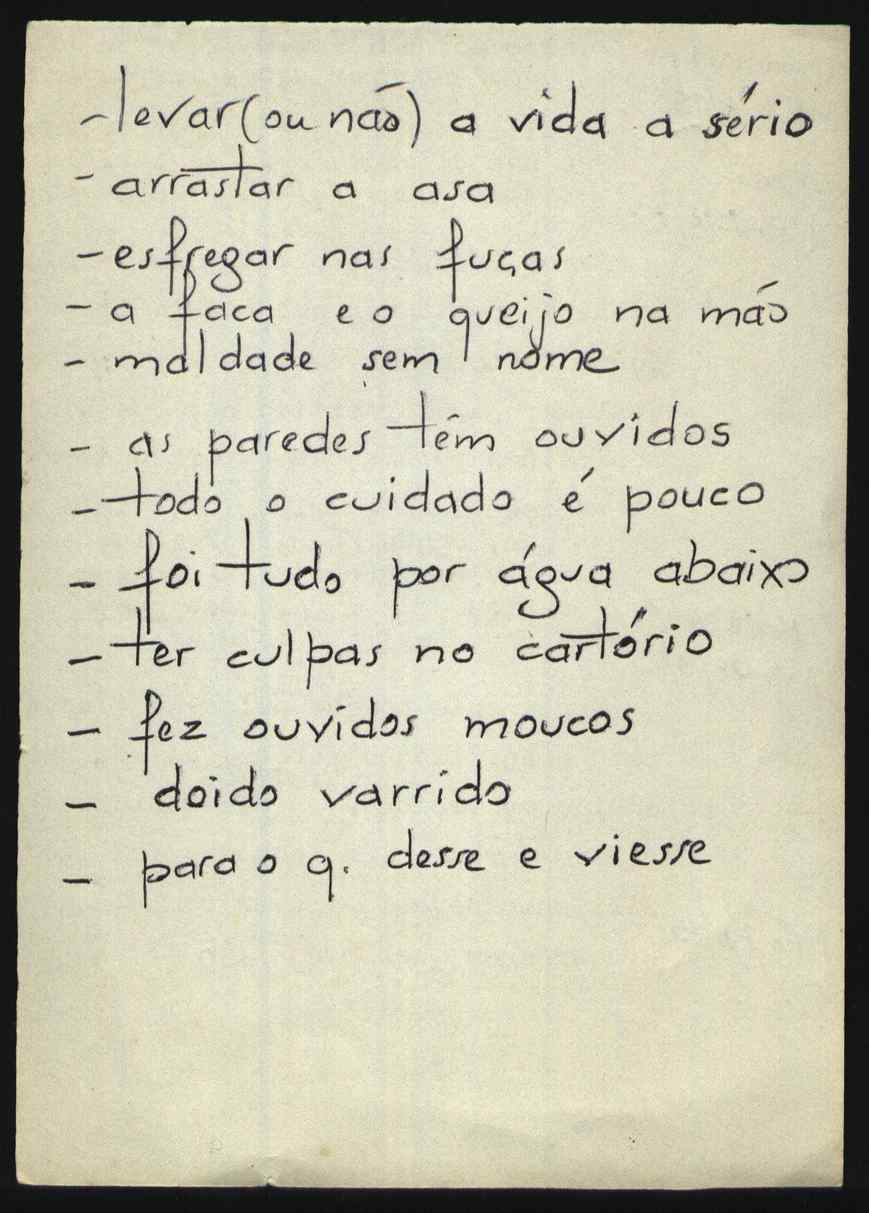 - levar (ou não) a vida a sério
- arrastar a asa
- esfregar nas fuças
- a faca e o queijo na mão
- maldade sem nome
- as paredes têm ouvidos
- todo o cuidado é pouco
- foi tudo por água abaixo
- ter culpas no cartório
- fez ouvidos moucos
- doido varrido
- para o q. desse e viesse